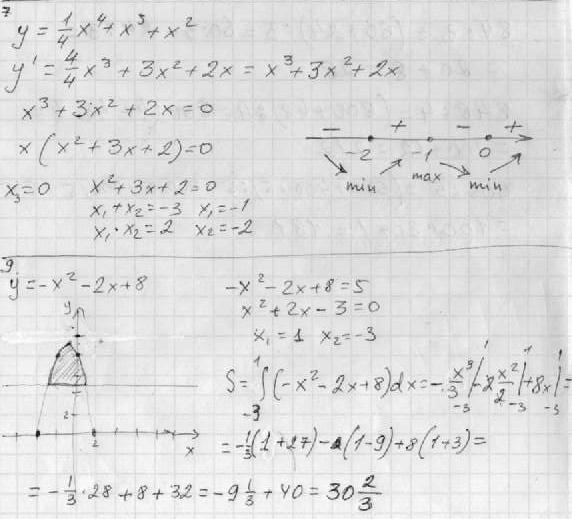 7
y = 1/4 x⁴ + x³ + x²
y' = 4/4 x³ + 3x² + 2x = x³ + 3x² + 2x
x³ + 3x² + 2x = 0
x(x² + 3x + 2) = 0
− + − +
-2 -1 0
min max min
x₃ = 0 x² + 3x + 2 = 0
x₁ + x₂ = -3 x₁ = -1
x₁ · x₂ = 2 x₂ = -2
9
y = -x² - 2x + 8
-x² - 2x + 8 = 5
x² + 2x - 3 = 0
x₁ = 1 x₂ = -3
y
2
2
x
S = ∫₋₃¹ (-x² - 2x + 8) dx = -x³/3 |₋₃¹ - 2x²/2 |₋₃¹ + 8x |₋₃¹ =
= -1/3 (1 + 27) - (1 - 9) + 8(1 + 3) =
= -1/3 · 28 + 8 + 32 = -9 1/3 + 40 = 30 2/3